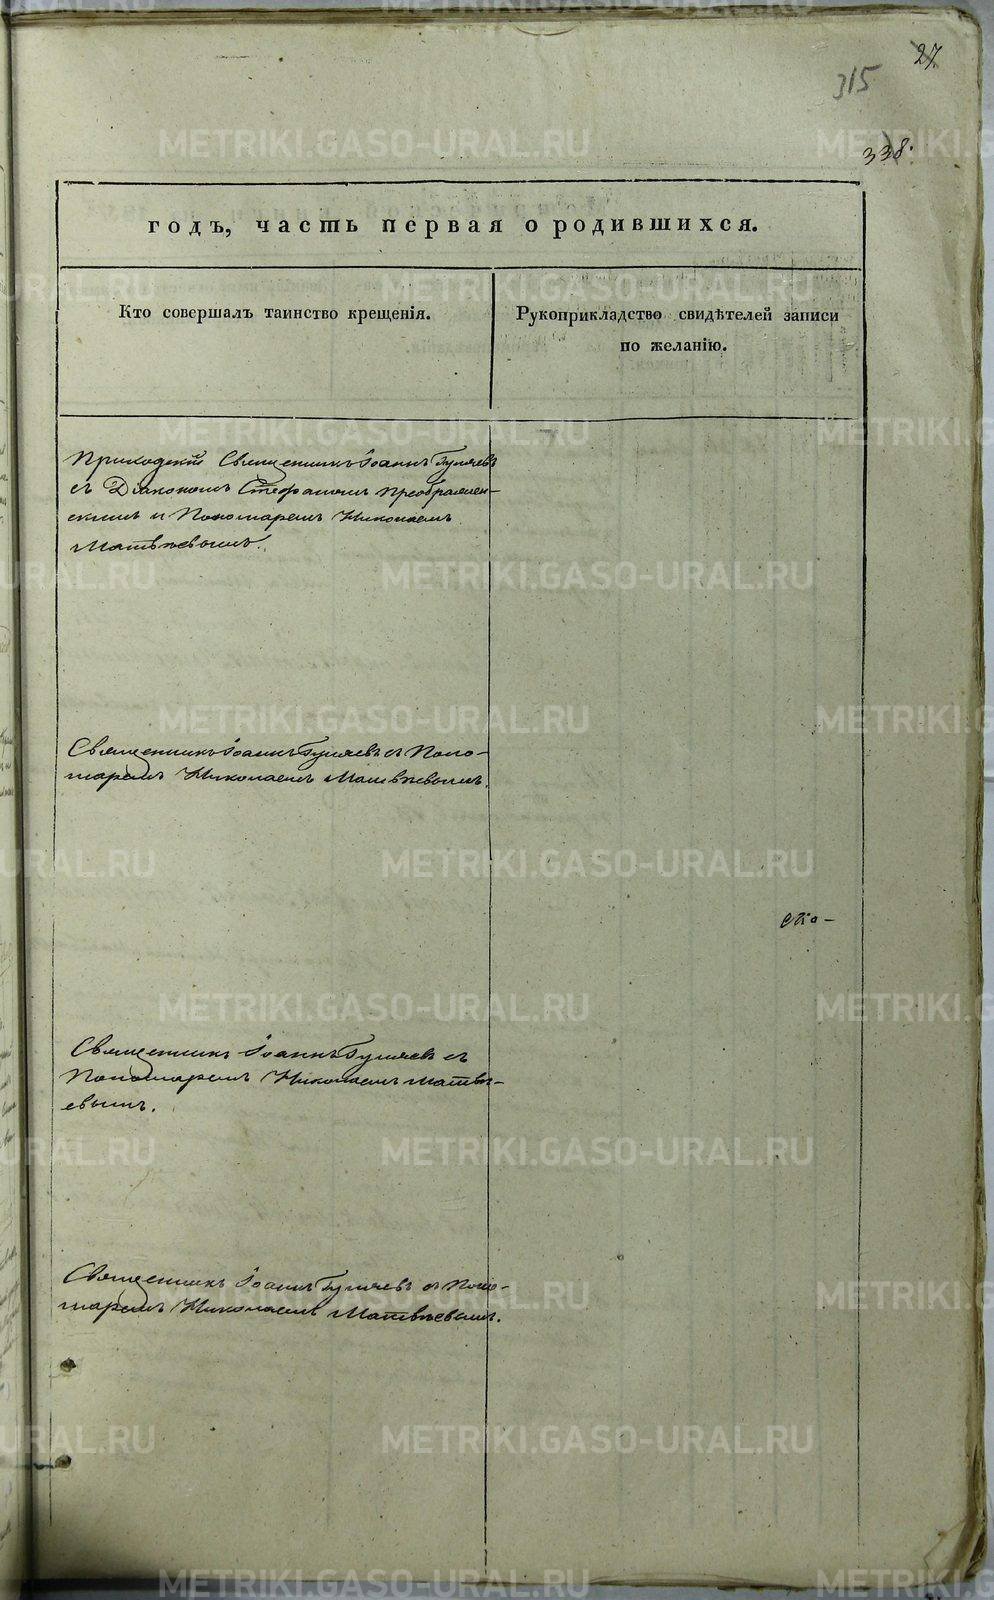 27
315
338.
годъ, часть первая о родившихся.
Кто совершалъ таинство крещенія.
Рукоприкладство свидѣтелей записи
по желанію.
Приходскій Священникъ Іоаннъ Гуляевъ
съ Діакономъ Стефаномъ Преображен-
скимъ и Пономаремъ Николаемъ
Матвѣевымъ.
Священникъ Іоаннъ Гуляевъ съ Поно-
маремъ Николаемъ Матвѣевымъ.
Священникъ Іоаннъ Гуляевъ съ
Пономаремъ Николаемъ Матвѣ-
евымъ.
Священникъ Іоаннъ Гуляевъ съ Поно-
маремъ Николаемъ Матвѣевымъ.
METRIKI.GASO-URAL.RU